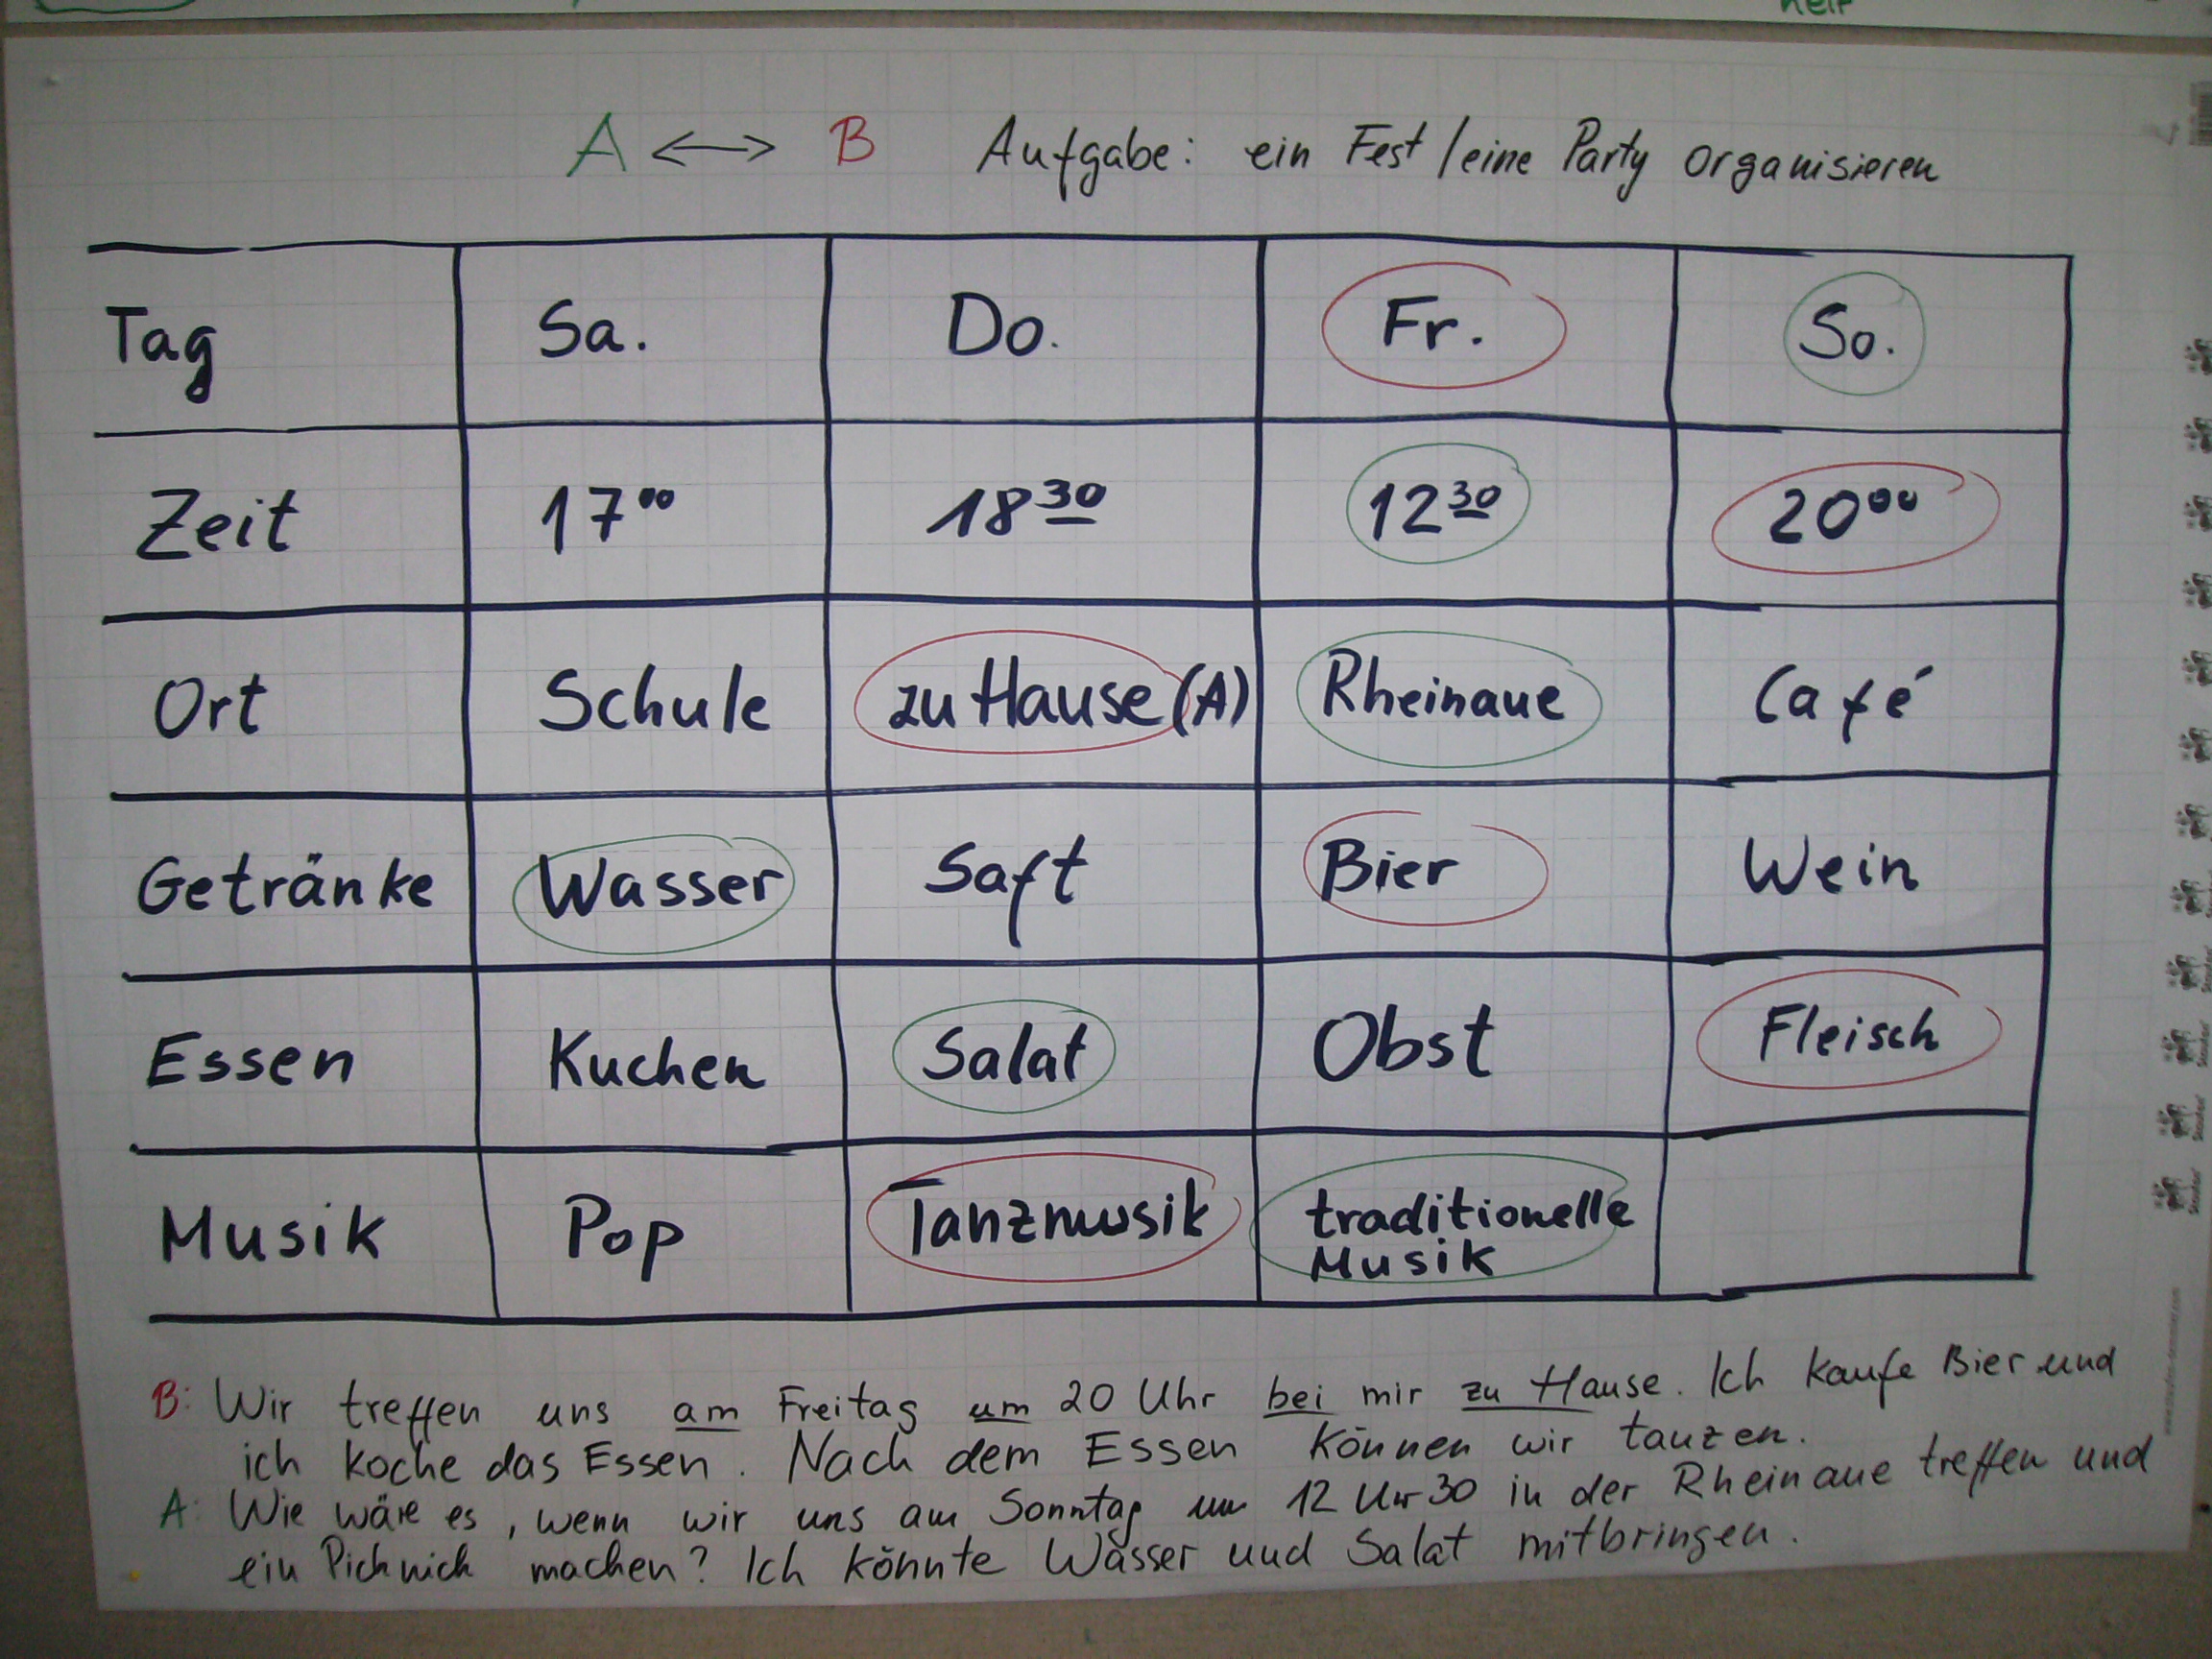 A ⟷ B Aufgabe: ein Fest / eine Party organisieren
Tag Sa. Do. Fr. So.
Zeit 17⁰⁰ 18³⁰ 12³⁰ 20⁰⁰
Ort Schule zu Hause (A) Rheinaue Café
Getränke Wasser Saft Bier Wein
Essen Kuchen Salat Obst Fleisch
Musik Pop Tanzmusik traditionelle
Musik
B: Wir treffen uns am Freitag um 20 Uhr bei mir zu Hause. Ich kaufe Bier und
ich koche das Essen. Nach dem Essen können wir tanzen.
A: Wie wäre es, wenn wir uns am Sonntag um 12 Uhr 30 in der Rheinaue treffen und
ein Picknick machen? Ich könnte Wasser und Salat mitbringen.